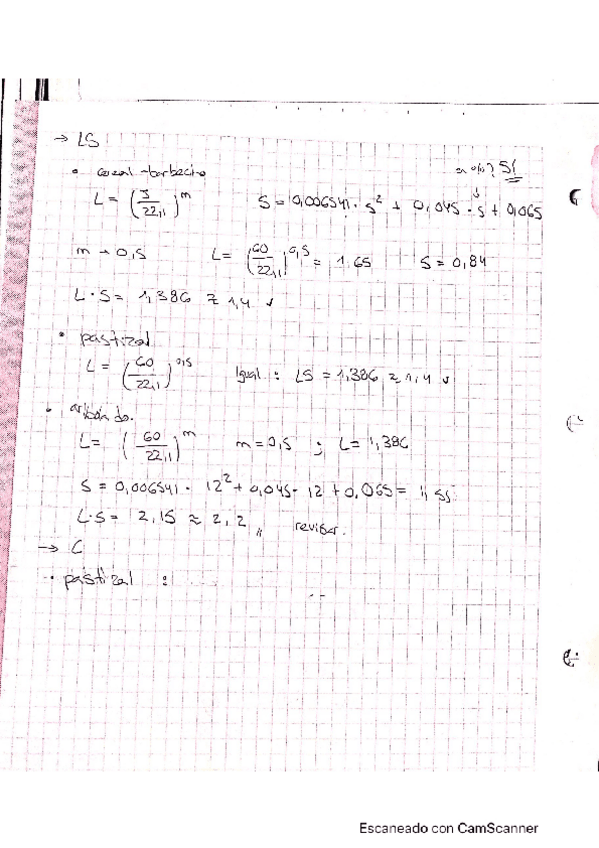 → LS
• cereal-barbecho en %? SÍ
L = (λ/22,1)^m S = 0,006541 · s² + 0,045 · s + 0,065
m → 0,5 L = (60/22,1)^0,5 = 1.65 S = 0,84
L · S = 1,386 ≈ 1,4
• pastizal
L = (60/22,1)^0,5 Igual : LS = 1,386 ≈ 1,4
• arbolado.
L = (60/22,1)^m m = 0,5 ; L = 1,386
S = 0,006541 · 12² + 0,045 · 12 + 0,065 =
L·S = 2,15 ≈ 2,2 revisar.
→ C
• pastizal : ....
Escaneado con CamScanner